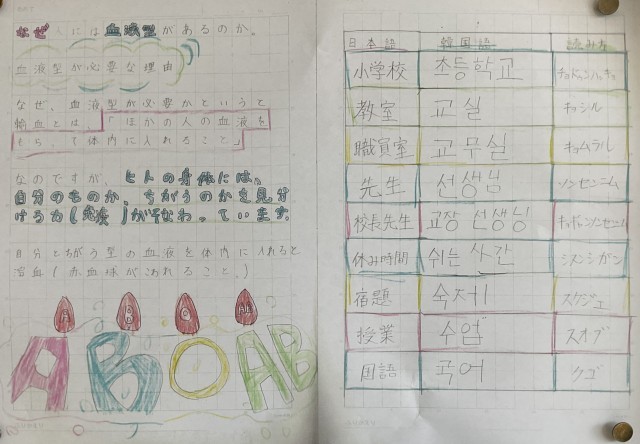 なぜ人には血液型があるのか。
血液型が必要な理由
なぜ、血液型が必要かというと
輸血とは、「ほかの人の血液を
もらって体内に入れること」
なのですが、ヒトの身体には、
自分のものか、ちがうのかを見分
ける力(免疫)がそなわっています。
自分とちがう型の血液を体内に入れると
溶血(赤血球がこわれること。)
A B O AB
日本語 韓国語 読みかた
小学校 초등학교
教室 교실 キョシル
職員室 교무실 キョムシル
先生 선생님 ソンセンニム
校長先生 교장 선생님 キョジャンソンセンニム
休み時間 쉬는 시간 シヌンシガン
宿題 숙제 スクジェ
授業 수업 スオプ
国語 국어 クゴ